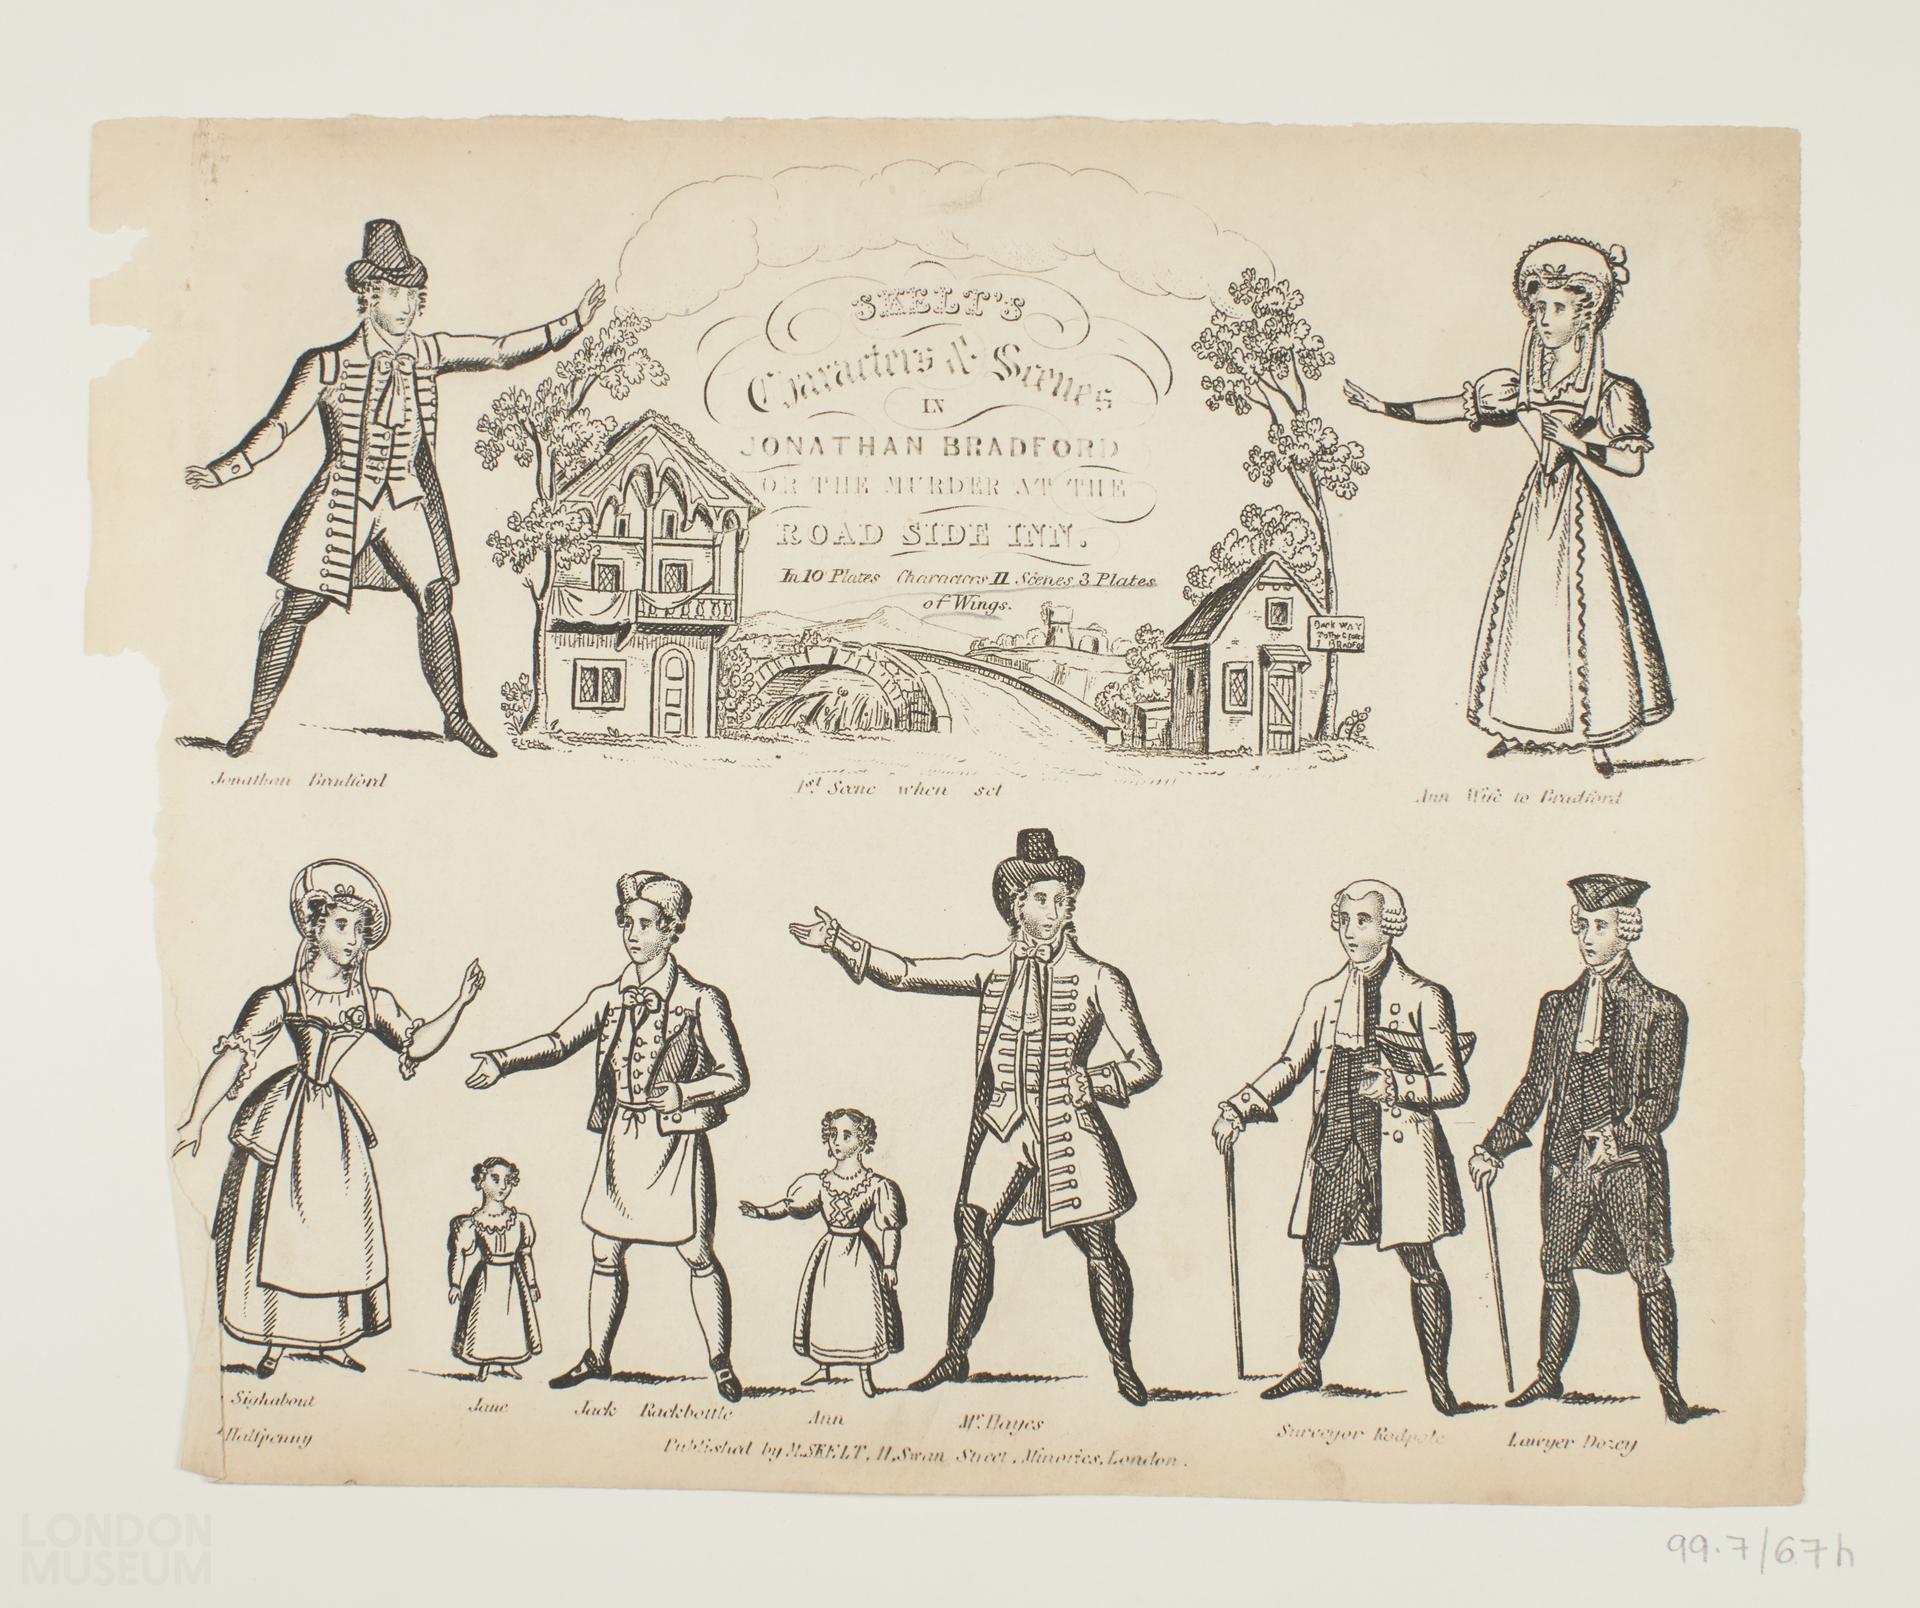 SKELT'S
Characters & Scenes
IN
JONATHAN BRADFORD
OR THE MURDER AT THE
ROAD SIDE INN.
In 10 Plates Characters 11 Scenes 3 Plates
of Wings.
BACK WAY
To the
J BRADFO
Jonathan Bradford
1st Scene when set
Ann Wife to Bradford
Sighabout
Halfpenny
Jane
Jack Rackbottle
Ann
Mr. Hayes
Surveyor Rodpole
Lawyer Dozey
Published by M. SKELT, 11, Swan Street, Minories, London.
LONDON
MUSEUM
99.7/67h